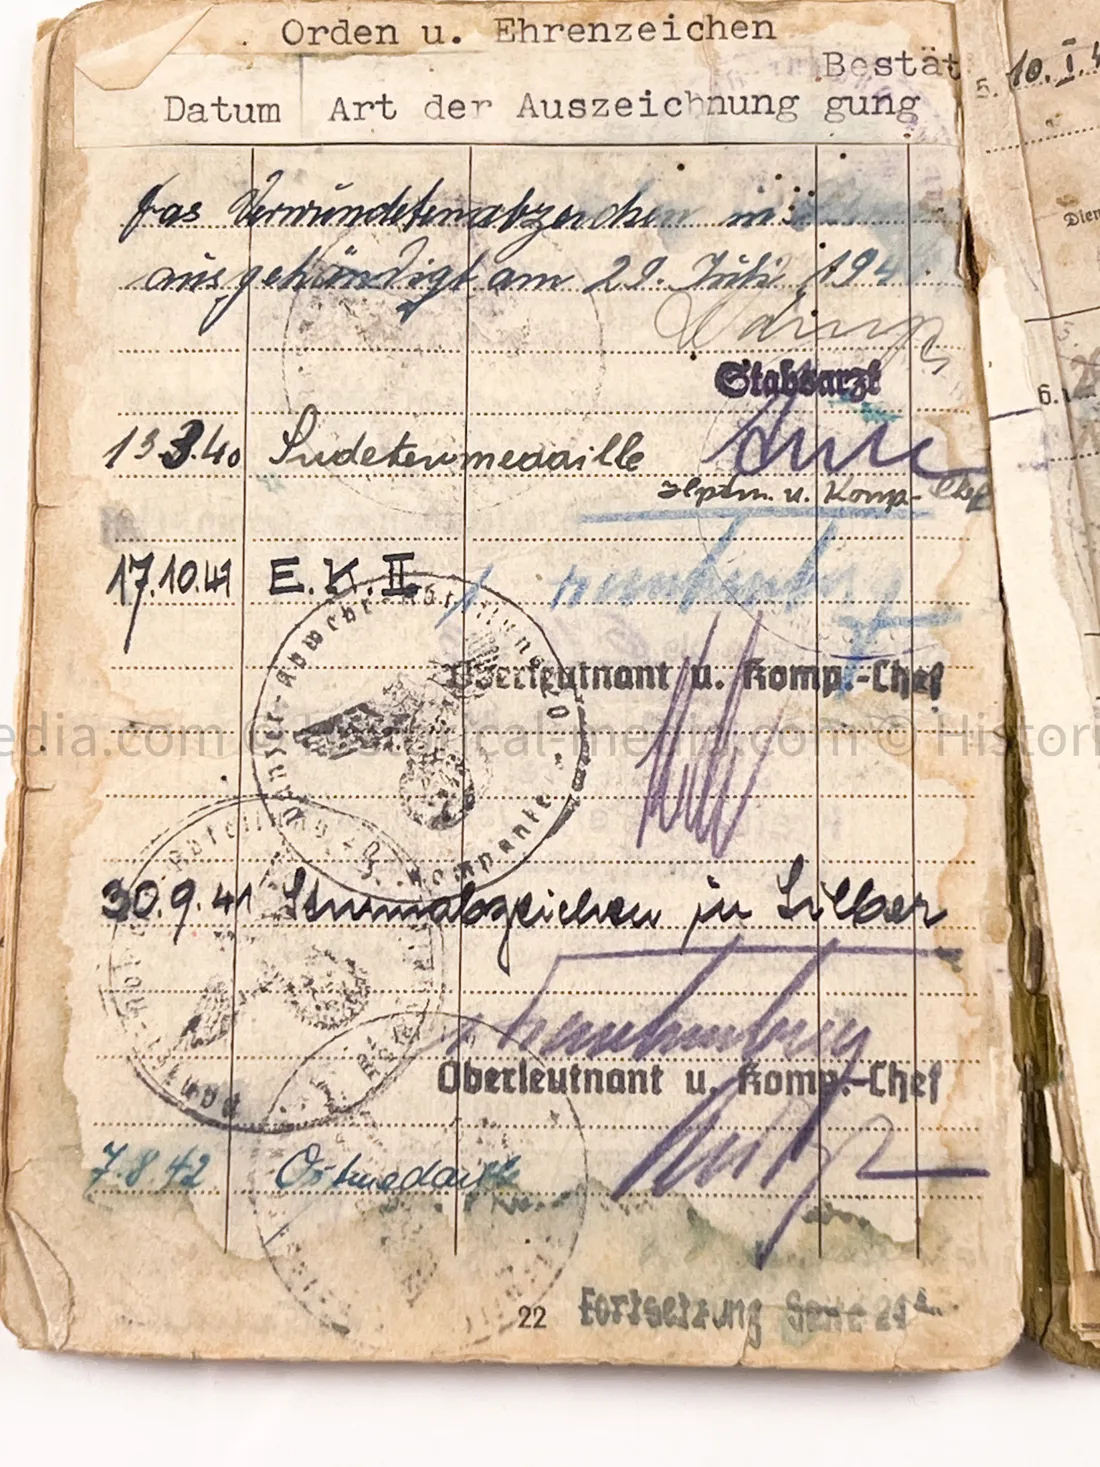 Orden u. Ehrenzeichen
Bestät
Datum Art der Auszeichnung gung
5. 10.I.4
Das Verwundetenabzeichen in
Dien
ausgehändigt am 29. Juli 194
Stabsarzt
6.
13.3.40 Sudetenmedaille
Hptm. u. Komp.-Chef
17.10.41 E.K.II
Oberleutnant u. Komp.-Chef
Panzer-Abwehr-Abteilung
Kompanie
edia.com © Historical-media.com © Histori
30.9.41 Sturmabzeichen in Silber
Oberleutnant u. Komp.-Chef
7.8.42 Ostmedaille
22 Fortsetzung Seite